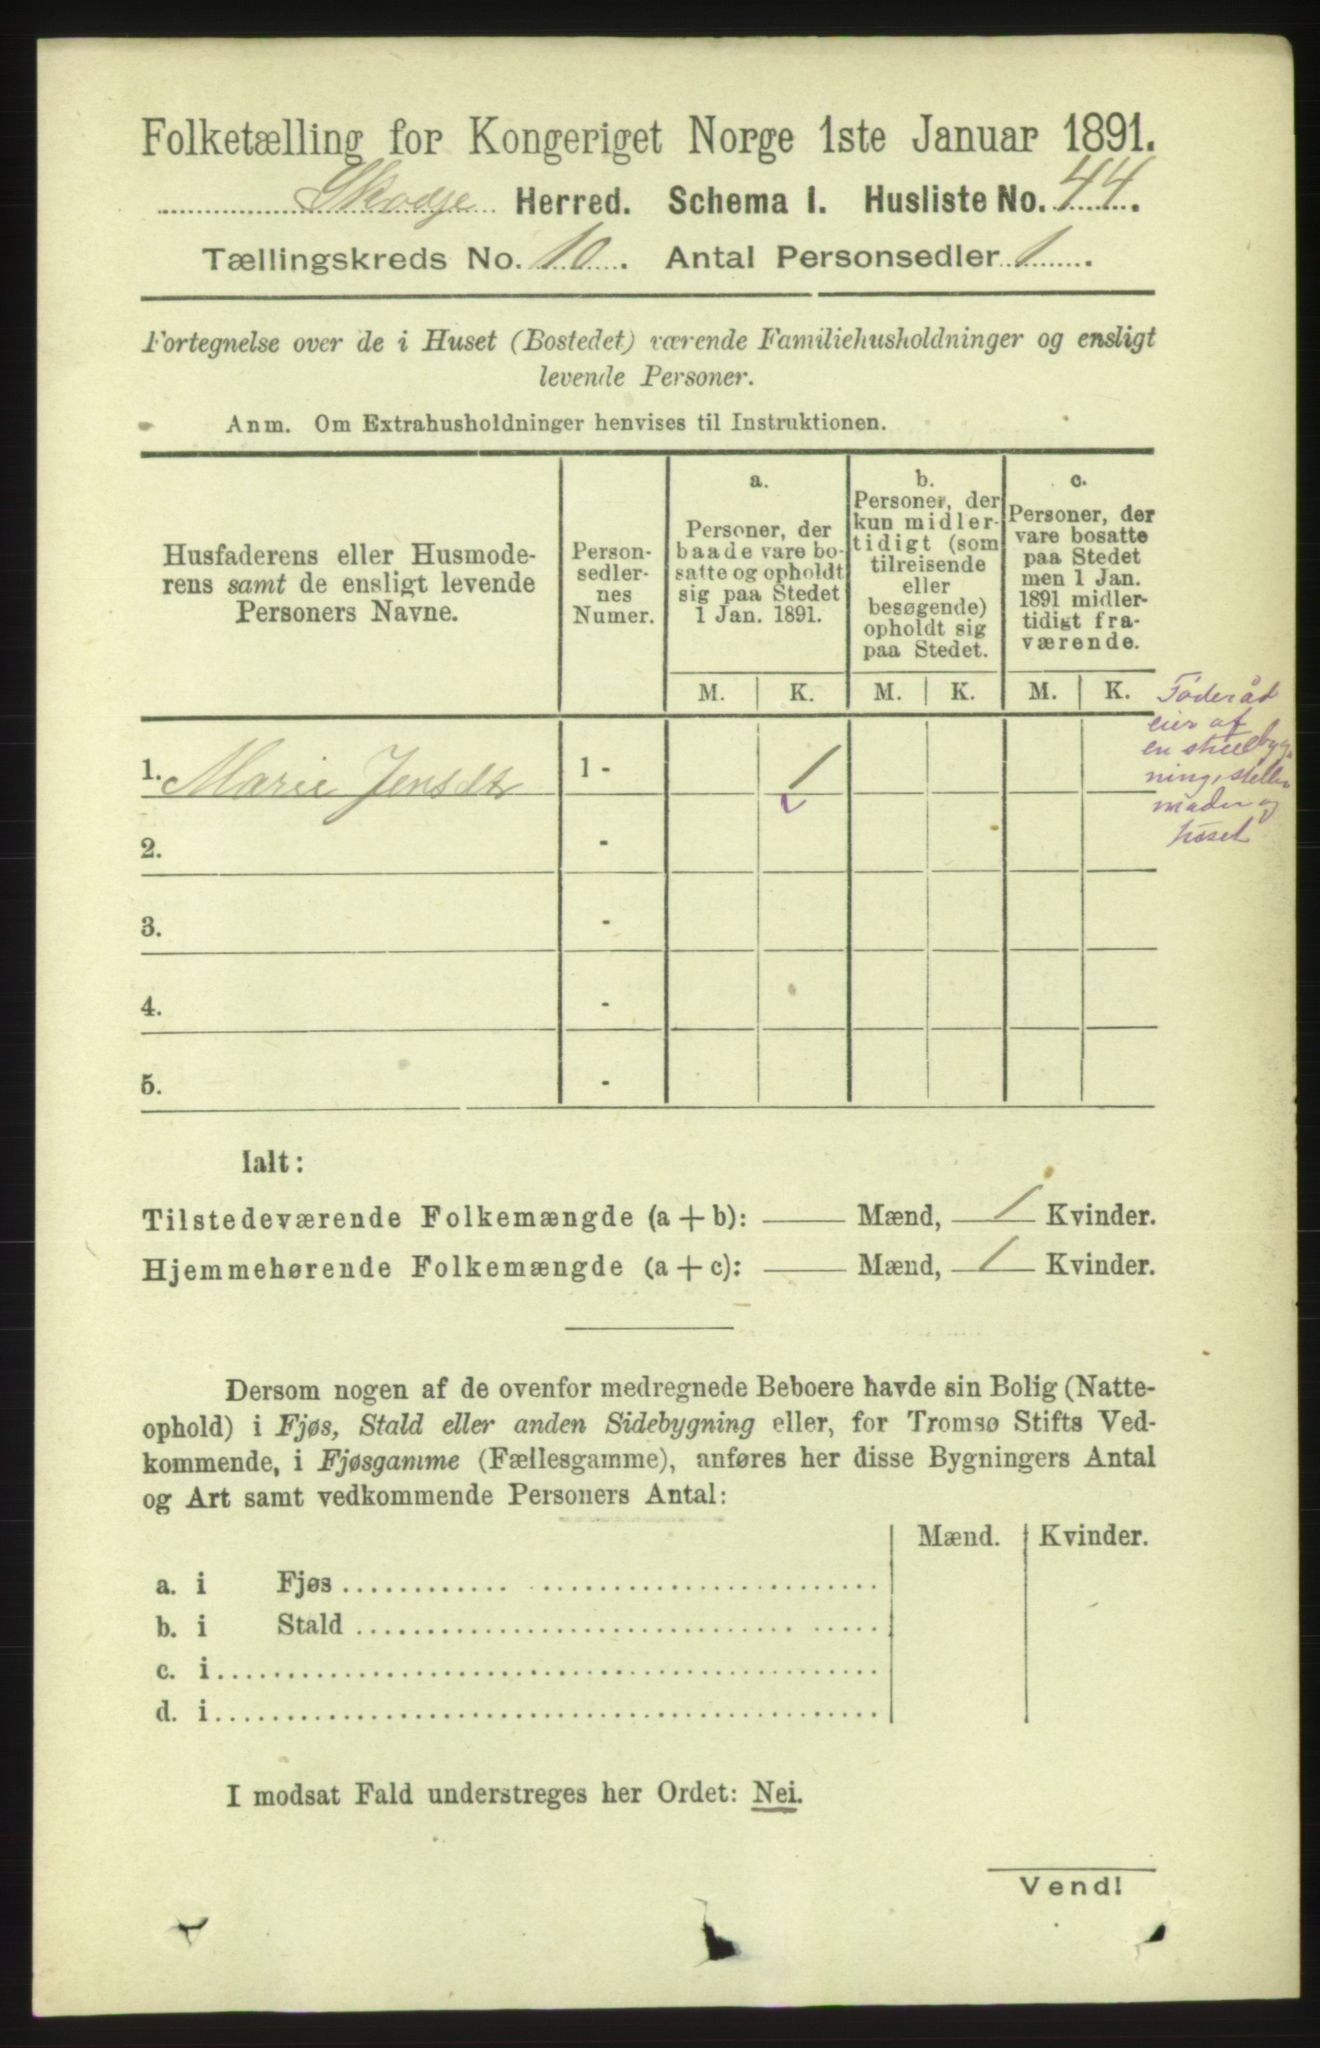 Folketælling for Kongeriget Norge 1ste Januar 1891.
Skodje Herred. Schema I. Husliste No. 44.
Tællingskreds No. 10. Antal Personsedler 1.
Fortegnelse over de i Huset (Bostedet) værende Familiehusholdninger og ensligt
levende Personer.
Anm. Om Extrahusholdninger henvises til Instruktionen.
Husfaderens eller Husmode-
rens samt de ensligt levende
Personers Navne.
Person-
sedler-
nes
Numer.
a.
Personer, der
baade vare bo-
satte og opholdt
sig paa Stedet
1 Jan. 1891.
b.
Personer, der
kun midler-
tidigt (som
tilreisende
eller
besøgende)
opholdt sig
paa Stedet.
c.
Personer, der
vare bosatte
paa Stedet
men 1 Jan.
1891 midler-
tidigt fra-
værende.
M. K. M. K. M. K.
Føderåd
eier af
en
ning, steller
maden og
huset
1. Marie Jensdt 1 - 1
2. -
3. -
4. -
5. -
Ialt:
Tilstedeværende Folkemængde (a + b): —— Mænd, 1 Kvinder.
Hjemmehørende Folkemængde (a + c): —— Mænd, 1 Kvinder.
Dersom nogen af de ovenfor medregnede Beboere havde sin Bolig (Natte-
ophold) i Fjøs, Stald eller anden Sidebygning eller, for Tromsø Stifts Ved-
kommende, i Fjøsgamme (Fællesgamme), anføres her disse Bygningers Antal
og Art samt vedkommende Personers Antal:
Mænd. Kvinder.
a. i Fjøs
b. i Stald
c. i
d. i
I modsat Fald understreges her Ordet: Nei.
Vend!